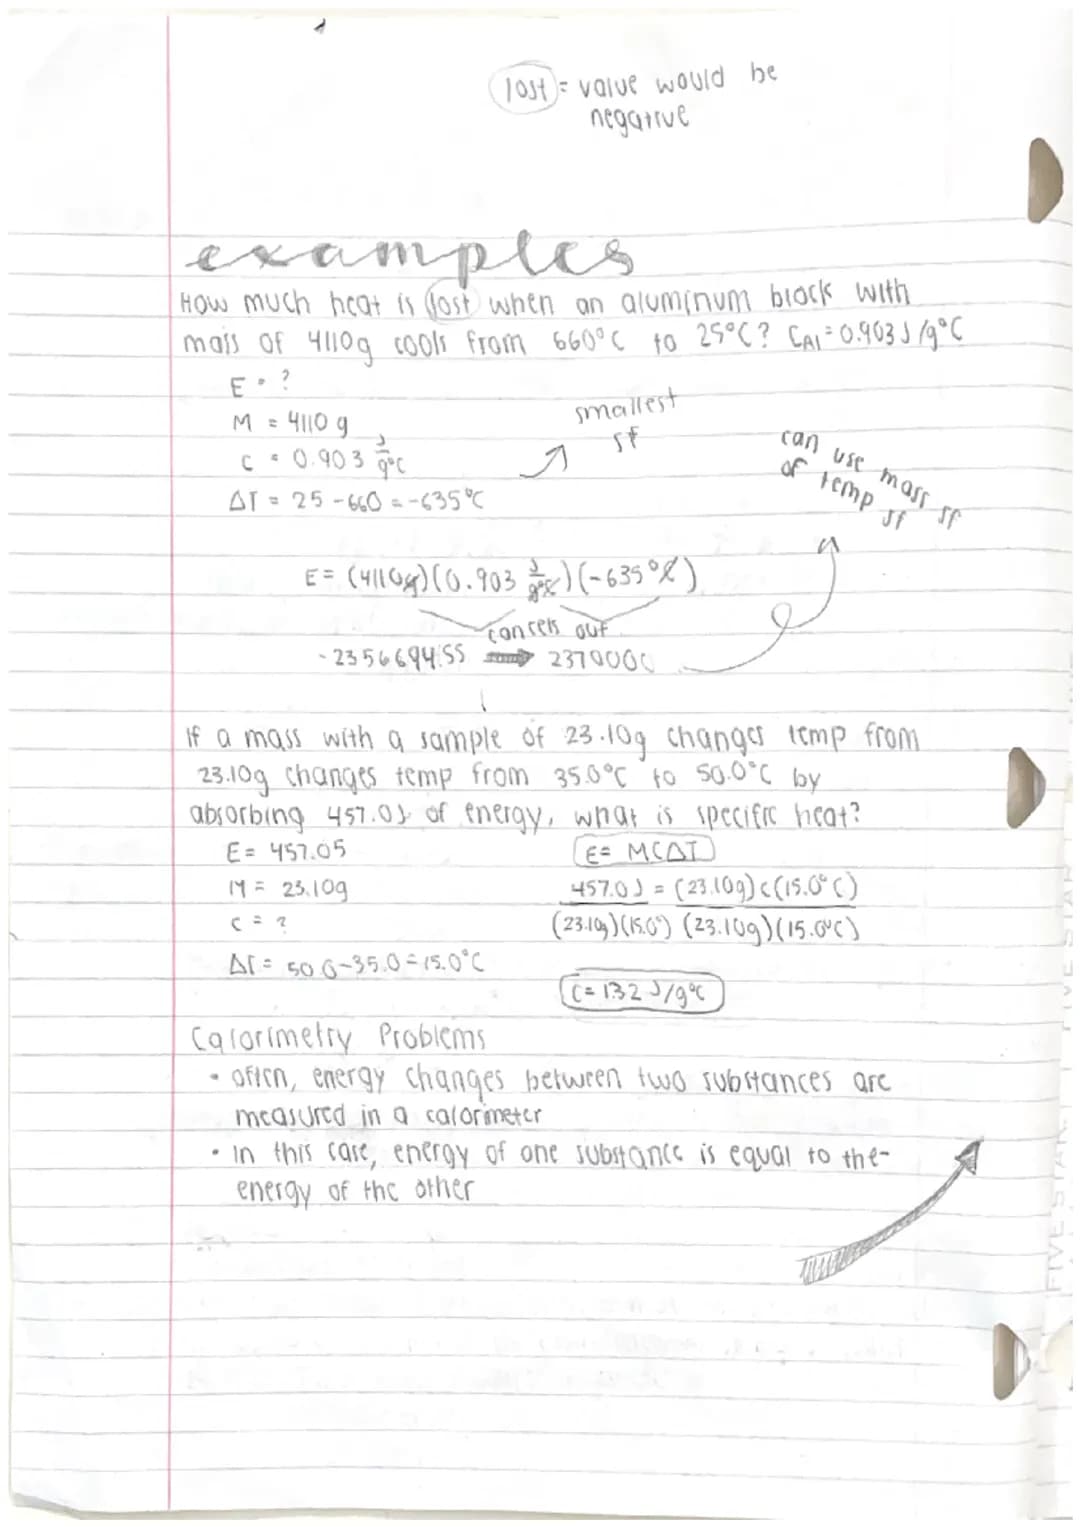 lost = value would be
negative
examples
How much heat is lost when an aluminum block with
mass of 4110g cools from 660°C to 25°C? CAl = 0.903 J/g°C
E = ?
M = 4110 g
C = 0.903 J/g°C
ΔT = 25 - 660 = -635°C
smallest
sf
can use mass sf
of temp sf
E = (4110g)(0.903 J/g°C)(-635°C)
cancels out
-2356694.55 → 2370000
If a mass with a sample of 23.10g changes temp from
23.10g changes temp from 35.0°C to 50.0°C by
absorbing 457.0J of energy, what is specific heat?
E = 457.05
M = 23.10g
C = ?
ΔT = 50.0-35.0 = 15.0°C
E = MCΔT
457.0J = (23.10g)c(15.0°C)
(23.10g)(15.0°) (23.10g)(15.0°C)
C = 1.32 J/g°C
Calorimetry Problems
• often, energy changes between two substances are
measured in a calorimeter
• in this case, energy of one substance is equal to the
energy of the other
FIVE STAR